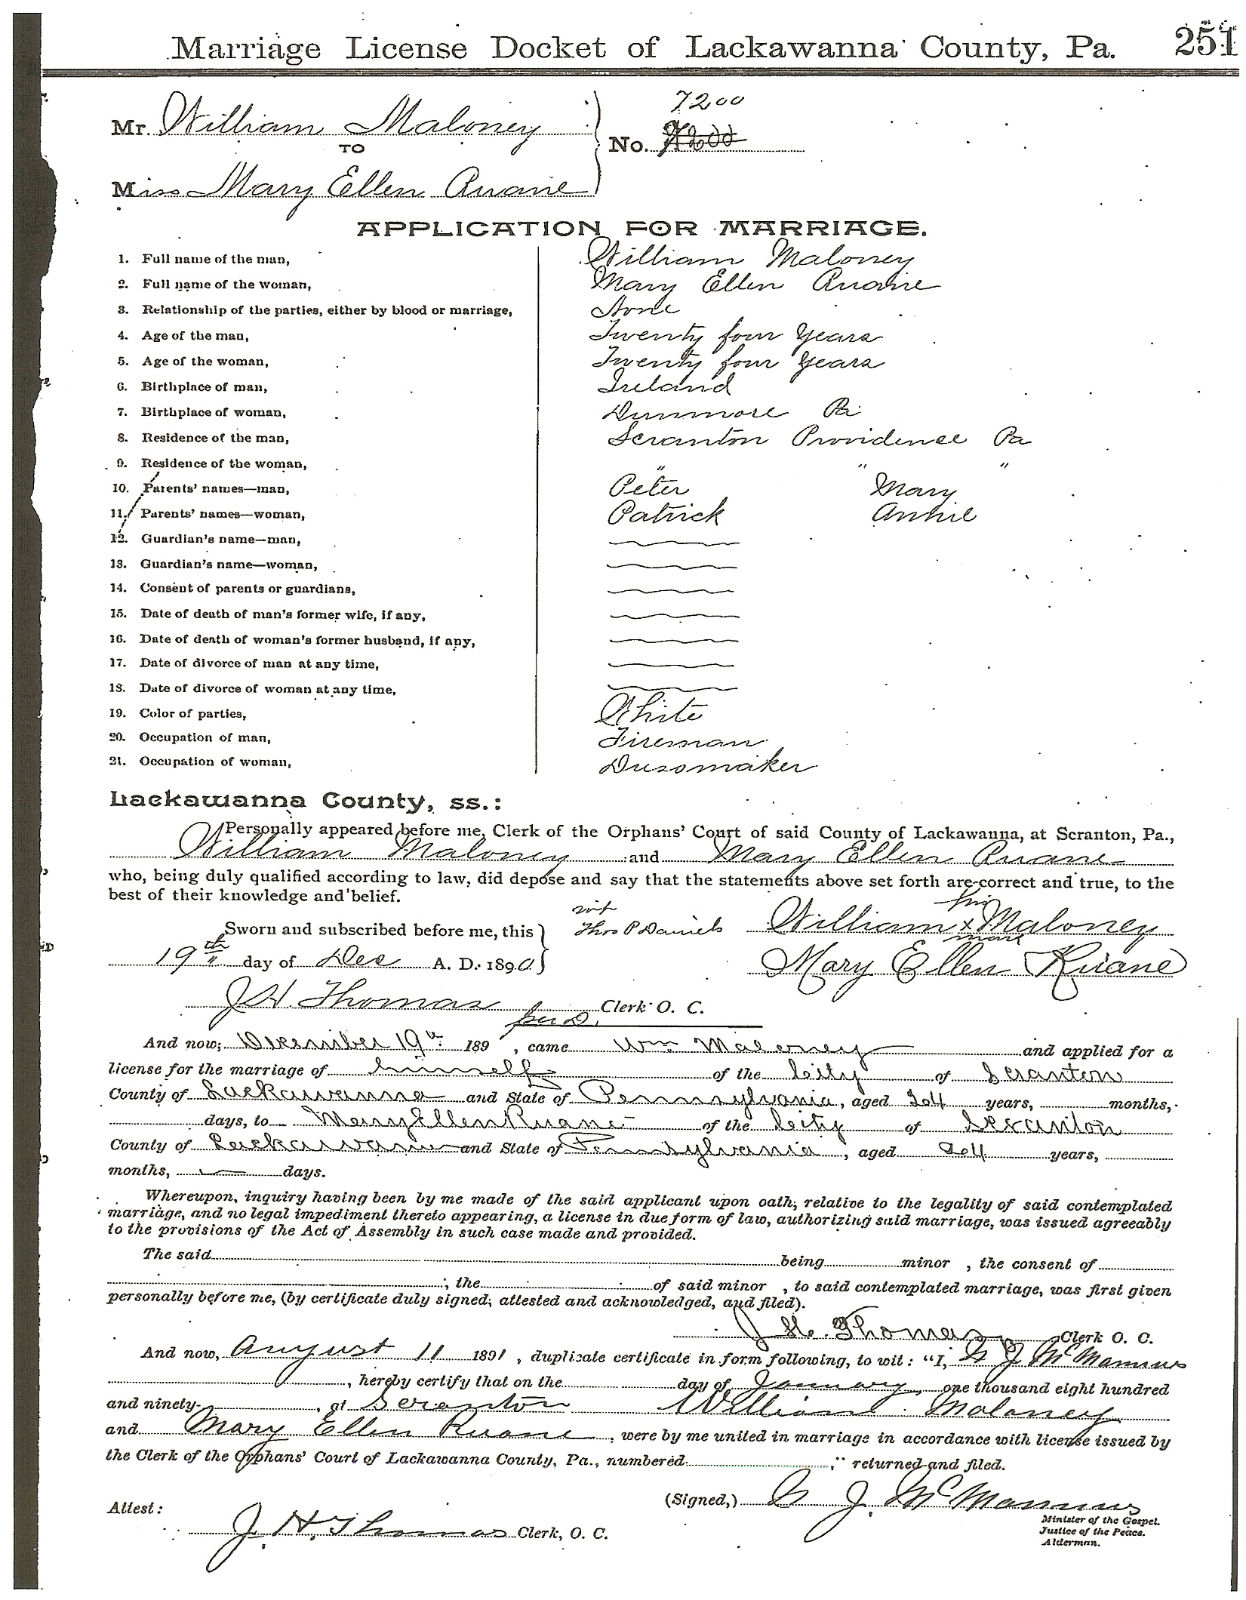 Marriage License Docket of Lackawanna County, Pa. 251
7200
Mr. William Maloney
TO
No. 7200
Miss Mary Ellen Ruane
APPLICATION FOR MARRIAGE.
1. Full name of the man, William Maloney
2. Full name of the woman, Mary Ellen Ruane
3. Relationship of the parties, either by blood or marriage, None
4. Age of the man, Twenty four Years
5. Age of the woman, Twenty four Years
6. Birthplace of man, Ireland
7. Birthplace of woman, Dunmore Pa
8. Residence of the man, Scranton Providence Pa
9. Residence of the woman, " " "
10. Parents' names—man, Peter Mary
11. Parents' names—woman, Patrick Annie
12. Guardian's name—man,
13. Guardian's name—woman,
14. Consent of parents or guardians,
15. Date of death of man's former wife, if any,
16. Date of death of woman's former husband, if any,
17. Date of divorce of man at any time,
18. Date of divorce of woman at any time,
19. Color of parties, White
20. Occupation of man, Fireman
21. Occupation of woman, Dressmaker
Lackawanna County, ss.:
Personally appeared before me, Clerk of the Orphans' Court of said County of Lackawanna, at Scranton, Pa.,
William Maloney and Mary Ellen Ruane
who, being duly qualified according to law, did depose and say that the statements above set forth are correct and true, to the
best of their knowledge and belief.
wit his
Sworn and subscribed before me, this Thos P Daniels William x Maloney
mark
19th day of Dec A. D. 1890 Mary Ellen Ruane
J H. Thomas Clerk O. C.
per D.
And now, December 19th 189 , came Wm Maloney and applied for a
license for the marriage of himself of the City of Scranton
County of Lackawanna and State of Pennsylvania, aged 24 years, months,
days, to Mary Ellen Ruane of the City of Scranton
County of Lackawanna and State of Pennsylvania, aged 24 years,
months, days.
Whereupon, inquiry having been by me made of the said applicant upon oath, relative to the legality of said contemplated
marriage, and no legal impediment thereto appearing, a license in due form of law, authorizing said marriage, was issued agreeably
to the provisions of the Act of Assembly in such case made and provided.
The said being minor , the consent of
, the of said minor , to said contemplated marriage, was first given
personally before me, (by certificate duly signed, attested and acknowledged, and filed).
J. H. Thomas Clerk O. C.
And now, August 11 1891, duplicate certificate in form following, to wit: "I, J McManus
, hereby certify that on the day of January, one thousand eight hundred
and ninety , at Scranton William Maloney
and Mary Ellen Ruane , were by me united in marriage in accordance with license issued by
the Clerk of the Orphans' Court of Lackawanna County, Pa., numbered ," returned and filed.
(Signed,) J. McManus
Attest:
Minister of the Gospel.
Justice of the Peace.
Alderman.
J. H. Thomas Clerk, O. C.